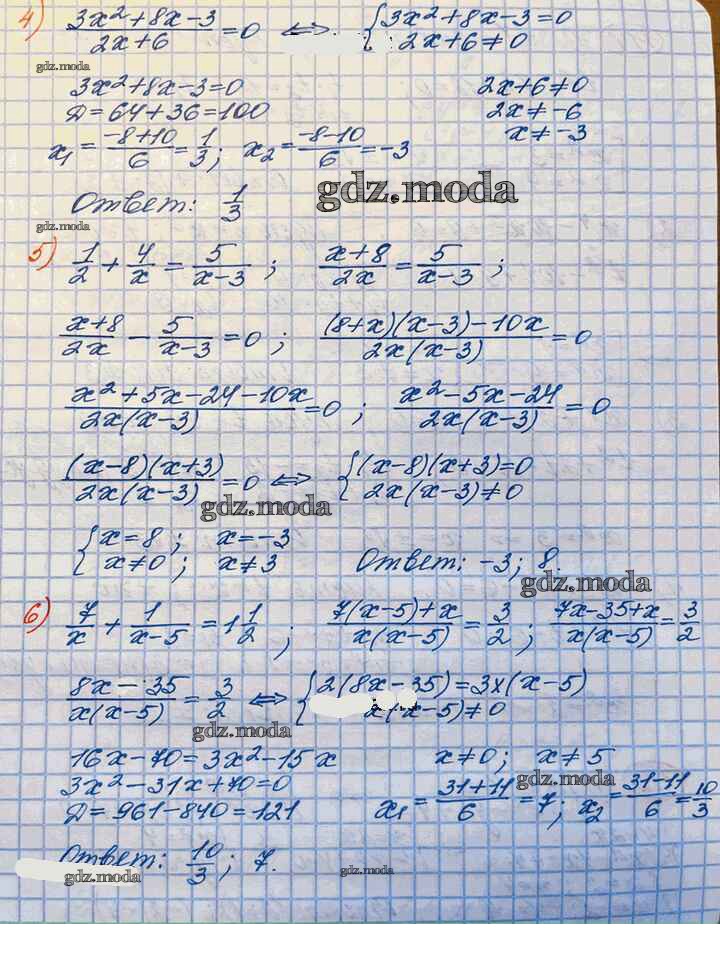 4) (3x²+8x-3)/(2x+6) = 0 ⟺ { 3x²+8x-3=0
2x+6≠0
gdz.moda
3x²+8x-3=0 2x+6≠0
D=64+36=100 2x≠-6
x₁ = (-8+10)/6 = 1/3; x₂ = (-8-10)/6 = -3 x≠-3
gdz.moda
Ответ: 1/3
gdz.moda
5) 1/2 + 4/x = 5/(x-3) ; (x+8)/(2x) = 5/(x-3) ;
(x+8)/(2x) - 5/(x-3) = 0 ; ((8+x)(x-3)-10x)/(2x(x-3)) = 0
(x²+5x-24-10x)/(2x(x-3)) = 0 ; (x²-5x-24)/(2x(x-3)) = 0
((x-8)(x+3))/(2x(x-3)) = 0 ⟺ { (x-8)(x+3)=0
2x(x-3)≠0
gdz.moda
{ x=8 ; x=-3
x≠0 ; x≠3 Ответ: -3; 8.
gdz.moda
6) 7/x + 1/(x-5) = 1 1/2 ; (7(x-5)+x)/(x(x-5)) = 3/2 ; (7x-35+x)/(x(x-5)) = 3/2
(8x-35)/(x(x-5)) = 3/2 ⟺ { 2(8x-35)=3x(x-5)
x(x-5)≠0
gdz.moda
16x-70=3x²-15x x≠0; x≠5
3x²-31x+70=0
gdz.moda
D=961-840=121 x₁ = (31+11)/6 = 7; x₂ = (31-11)/6 = 10/3
Ответ: 10/3 ; 7.
gdz.moda gdz.moda